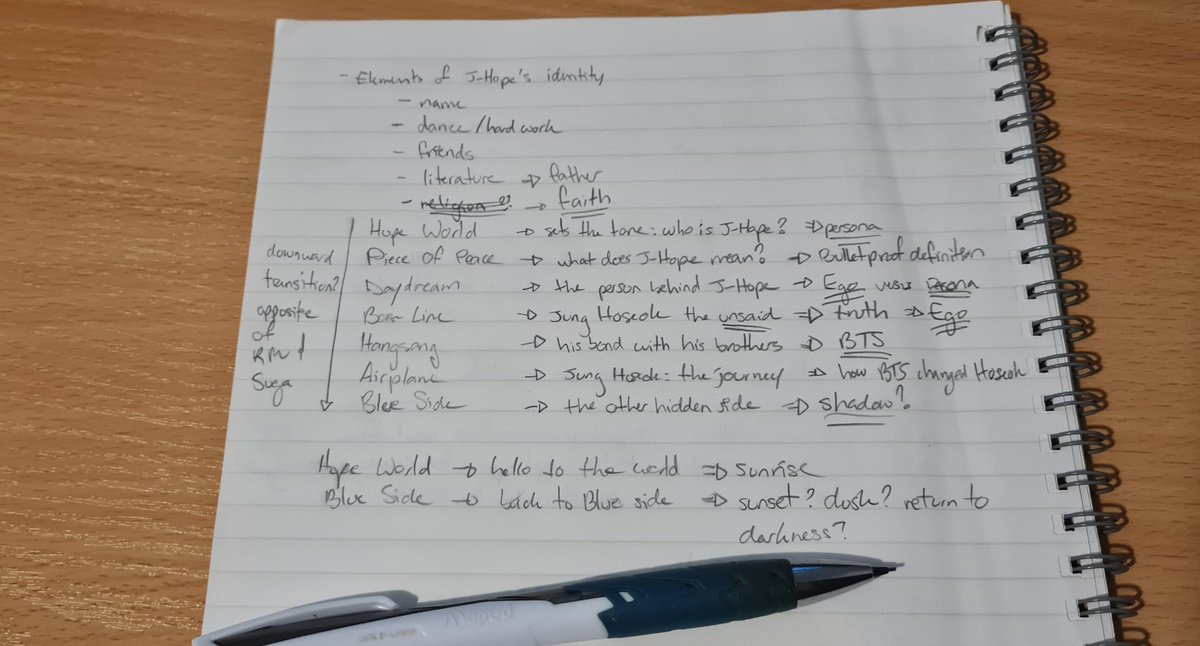 - Elements of J-Hope's identity
- name
- dance/hard work
- friends
- literature → father
- religion?? → faith
Hope World → sets the tone: who is J-Hope? ⇒ persona
Piece of Peace → what does J-Hope mean? → Bulletproof definition
Daydream → the person behind J-Hope → Ego versus Persona
Base Line → Jung Hoseok the unsaid ⇒ truth ⇒ Ego
Hangsang → his bond with his brothers ⇒ BTS
Airplane → Jung Hoseok: the journey ⇒ how BTS changed Hoseok
Blue Side → the other hidden side ⇒ shadow?
downward
transition?
opposite
of
RM &
Suga
Hope World → hello to the world ⇒ sunrise
Blue Side → back to Blue side ⇒ sunset? dusk? return to
darkness?
Maped